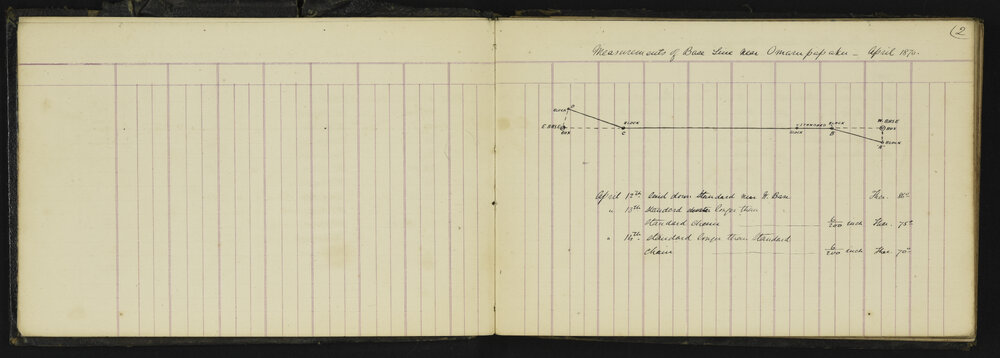 (2
Measurements of Base Line near Omarupapaku - April 1870.
BLOCK D
E. BASE BOX
BLOCK C
STANDARD BLOCK
BLOCK B
W. BASE BOX
"A" BLOCK
April 12th Laid down Standard near W. Base. Ther. 86°
" 13th Standard longer than
Standard Chain 6/200 inch Ther. 75°
" 16th Standard longer than Standard
Chain 6/200 inch Ther. 70°